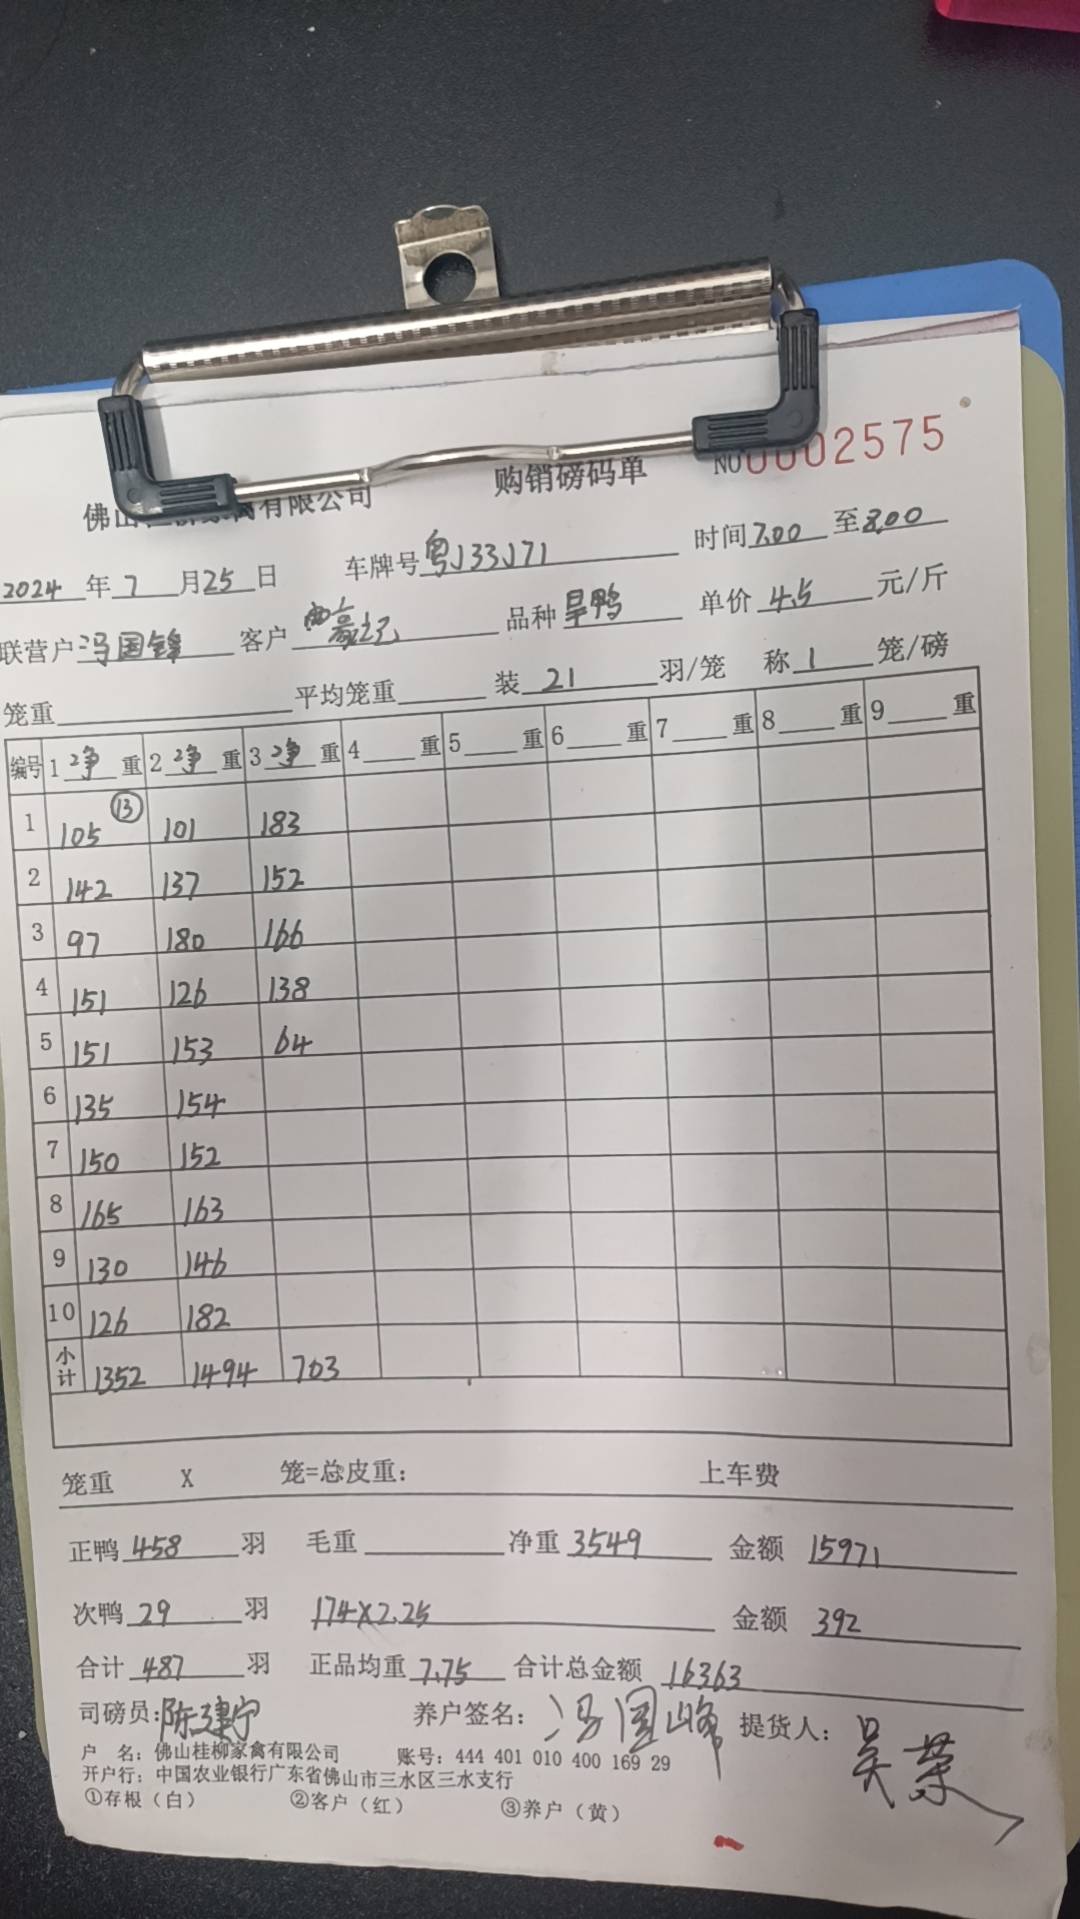 购销磅码单 NO 0002575
佛山桂柳家禽有限公司
2024 年 7 月 25 日 车牌号 粤J33J71 时间 7.00 至 8.00
联营户 冯国锋 客户 品种 旱鸭 单价 4.5 元/斤
笼重 平均笼重 装 21 羽/笼 称 1 笼/磅
编号 1 净 重 2 净 重 3 净 重 4 重 5 重 6 重 7 重 8 重 9 重
1 105 ⑬ 101 183
2 142 137 152
3 97 180 166
4 151 126 138
5 151 153 64
6 135 154
7 150 152
8 165 163
9 130 146
10 126 182
小计 1352 1494 703
笼重 X 笼=总皮重: 上车费
正鸭 458 羽 毛重 净重 3549 金额 15971
次鸭 29 羽 174X2.25 金额 392
合计 487 羽 正品均重 7.75 合计总金额 16363
司磅员: 陈建宁 养户签名: 冯国峰 提货人: 吴荣
户 名: 佛山桂柳家禽有限公司 账号: 444 401 010 400 169 29
开户行: 中国农业银行广东省佛山市三水区三水支行
①存根（白） ②客户（红） ③养户（黄）